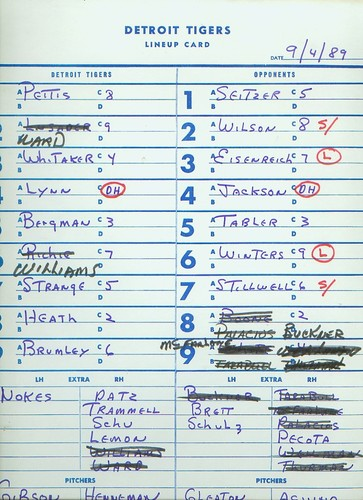 DETROIT TIGERS
LINEUP CARD
DATE 9/4/89
DETROIT TIGERS OPPONENTS
A PETTIS C 8 1 A SEITZER C 5
B D B D
A C 9 2 A WILSON C 8 S/
WARD D B D
A WHITAKER C 4 3 A EISENREICH C 7 L
B D B D
A LYNN C DH 4 A JACKSON C DH
B D B D
A BERGMAN C 3 5 A TABLER C 3
B D B D
A RICHIE C 7 6 A WINTERS C 9 L
WILLIAMS D B D
A STRANGE C 5 7 A STILLWELL C 6 S/
B D B D
A HEATH C 2 8 A BOONE C 2
B D PALACIOS BUCKNER
A BRUMLEY C 6 MCFARLANE 9
B D TARABULL
LH EXTRA RH LH EXTRA RH
NOKES DATZ BUCKNER TARABULL
TRAMMELL BRETT
SCHU SCHULZ PALACIOS
LEMON PECOTA
WILLIAMS WELLMAN
WARD THURMAN
PITCHERS PITCHERS
GIBSON HENNEMAN GLEATON AQUINO